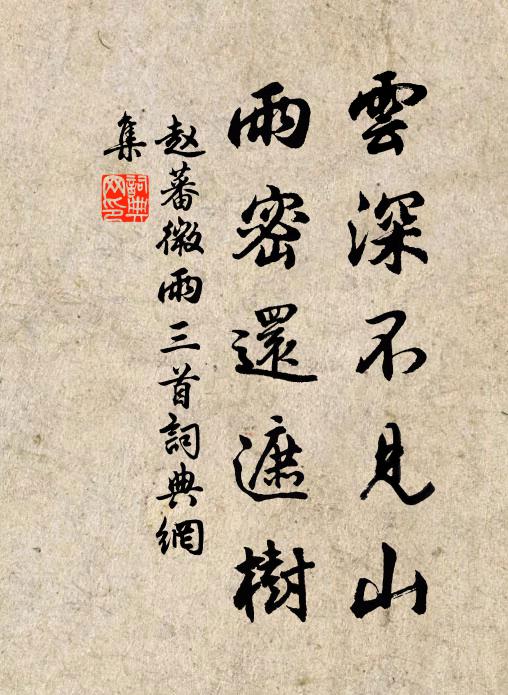 雲深不見山
雨密還遮樹
赵蕃微雨三首詞典網
集
詞典
网印